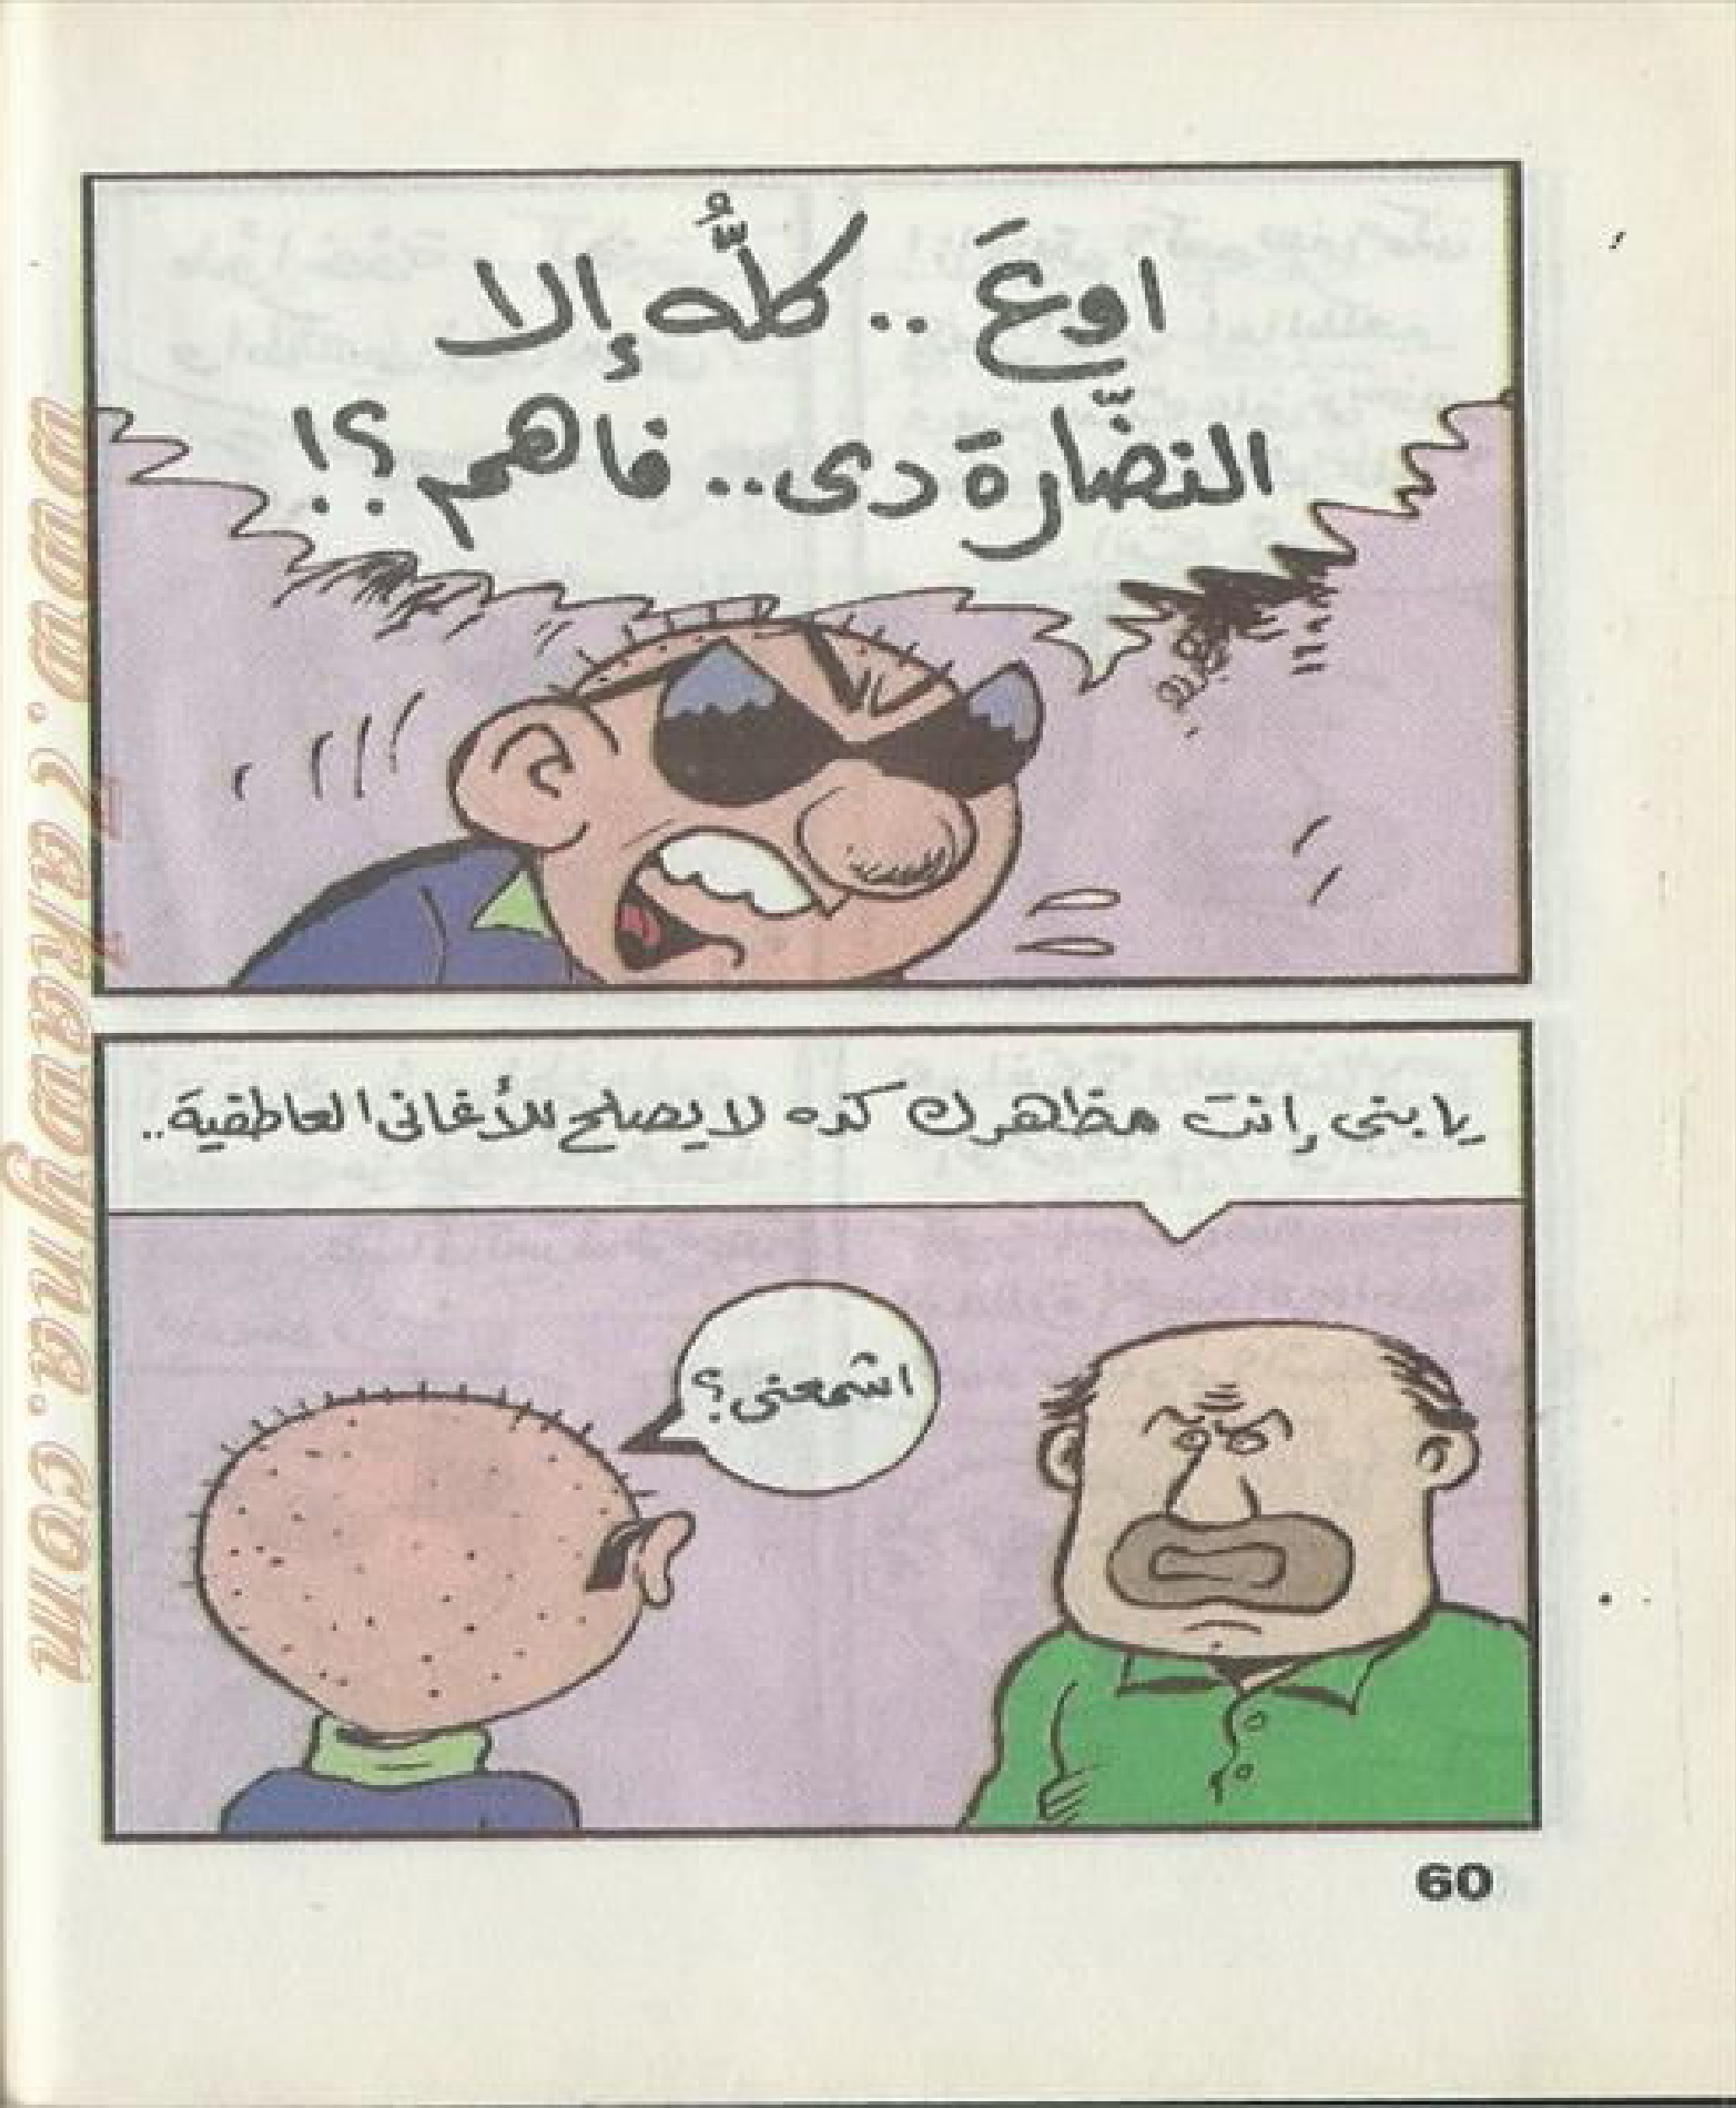 اوعَ .. كلُّه إلا
النضّارة دى.. فاهم؟!
يا بنى إنت مظهرك كده لا يصلح للأغانى العاطفية..
اشمعنى؟
60